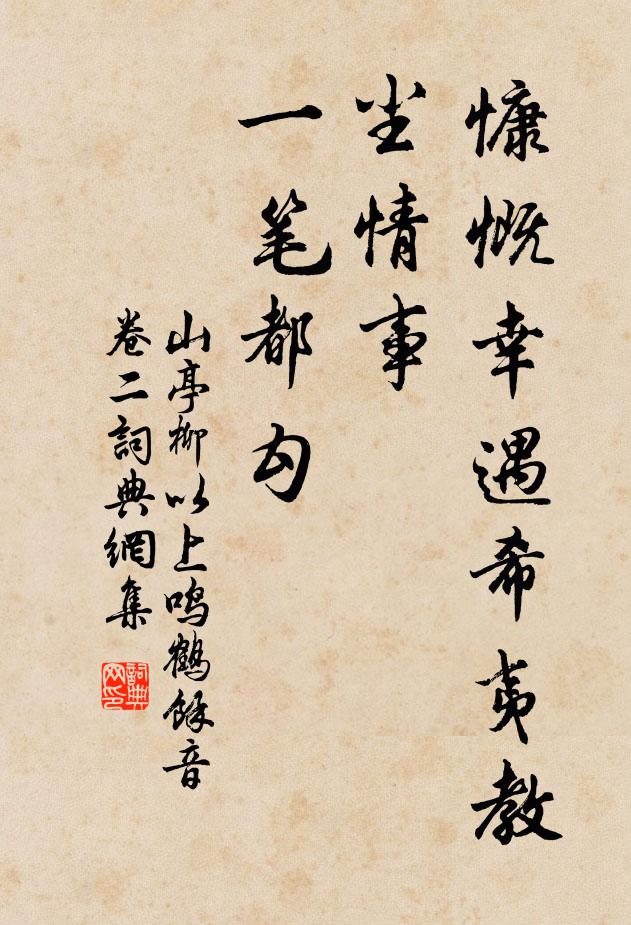 慷慨幸遇希夷教
尘情事
一笔都勾
山亭柳以上鸣鹤馀音
卷二詞典網集
詞典网印